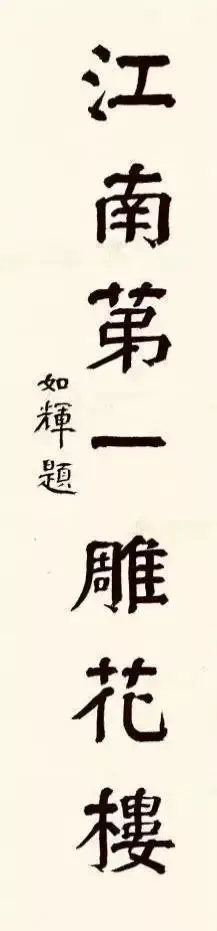 江南第一雕花樓
如輝題